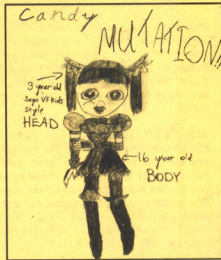 Candy
MUTATION!!
3 year old
Sega VF Kids
Style
HEAD
16 year old
BODY